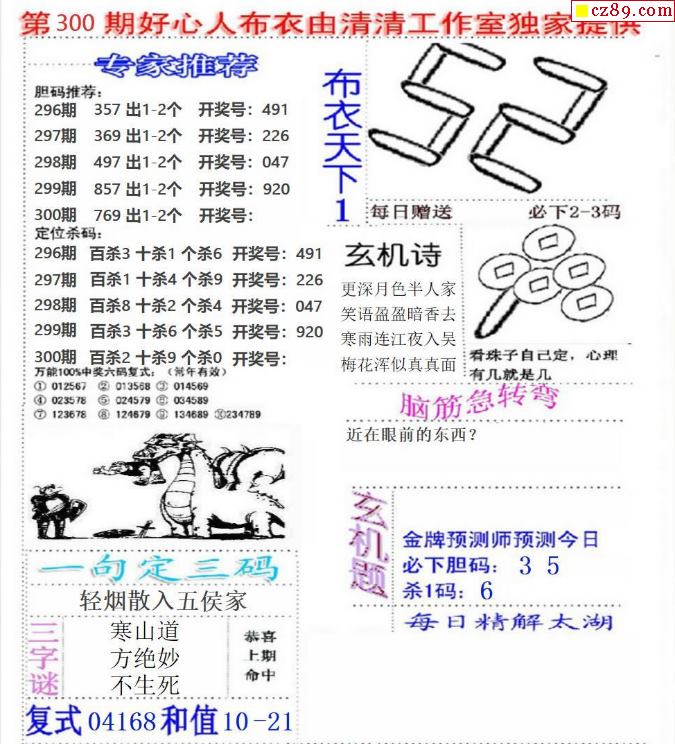 第300期好心人布衣由清清工作室独家提供
cz89.com
专家推荐
胆码推荐:
296期 357出1-2个 开奖号：491
297期 369出1-2个 开奖号：226
298期 497出1-2个 开奖号：047
299期 857出1-2个 开奖号：920
300期 769出1-2个 开奖号：
定位杀码:
296期 百杀3 十杀1 个杀6 开奖号：491
297期 百杀1 十杀4 个杀9 开奖号：226
298期 百杀8 十杀2 个杀4 开奖号：047
299期 百杀3 十杀6 个杀5 开奖号：920
300期 百杀2 十杀9 个杀0 开奖号：
万能100%中奖六码复式：（常年有效）
① 012567 ② 013568 ③ 014569
④ 023578 ⑤ 024579 ⑥ 034589
⑦ 123678 ⑧ 124679 ⑨ 134689 ⑩234789
一句定三码
轻烟散入五侯家
三字谜
寒山道
方绝妙
不生死
恭喜
上期
命中
复式04168和值10-21
布衣天下1
52
每日赠送 必下2-3码
玄机诗
更深月色半人家
笑语盈盈暗香去
寒雨连江夜入吴
梅花浑似真真面
看珠子自己定，心理
有几就是几
脑筋急转弯
近在眼前的东西？
玄机题
金牌预测师预测今日
必下胆码： 3 5
杀1码： 6
每日精解太湖